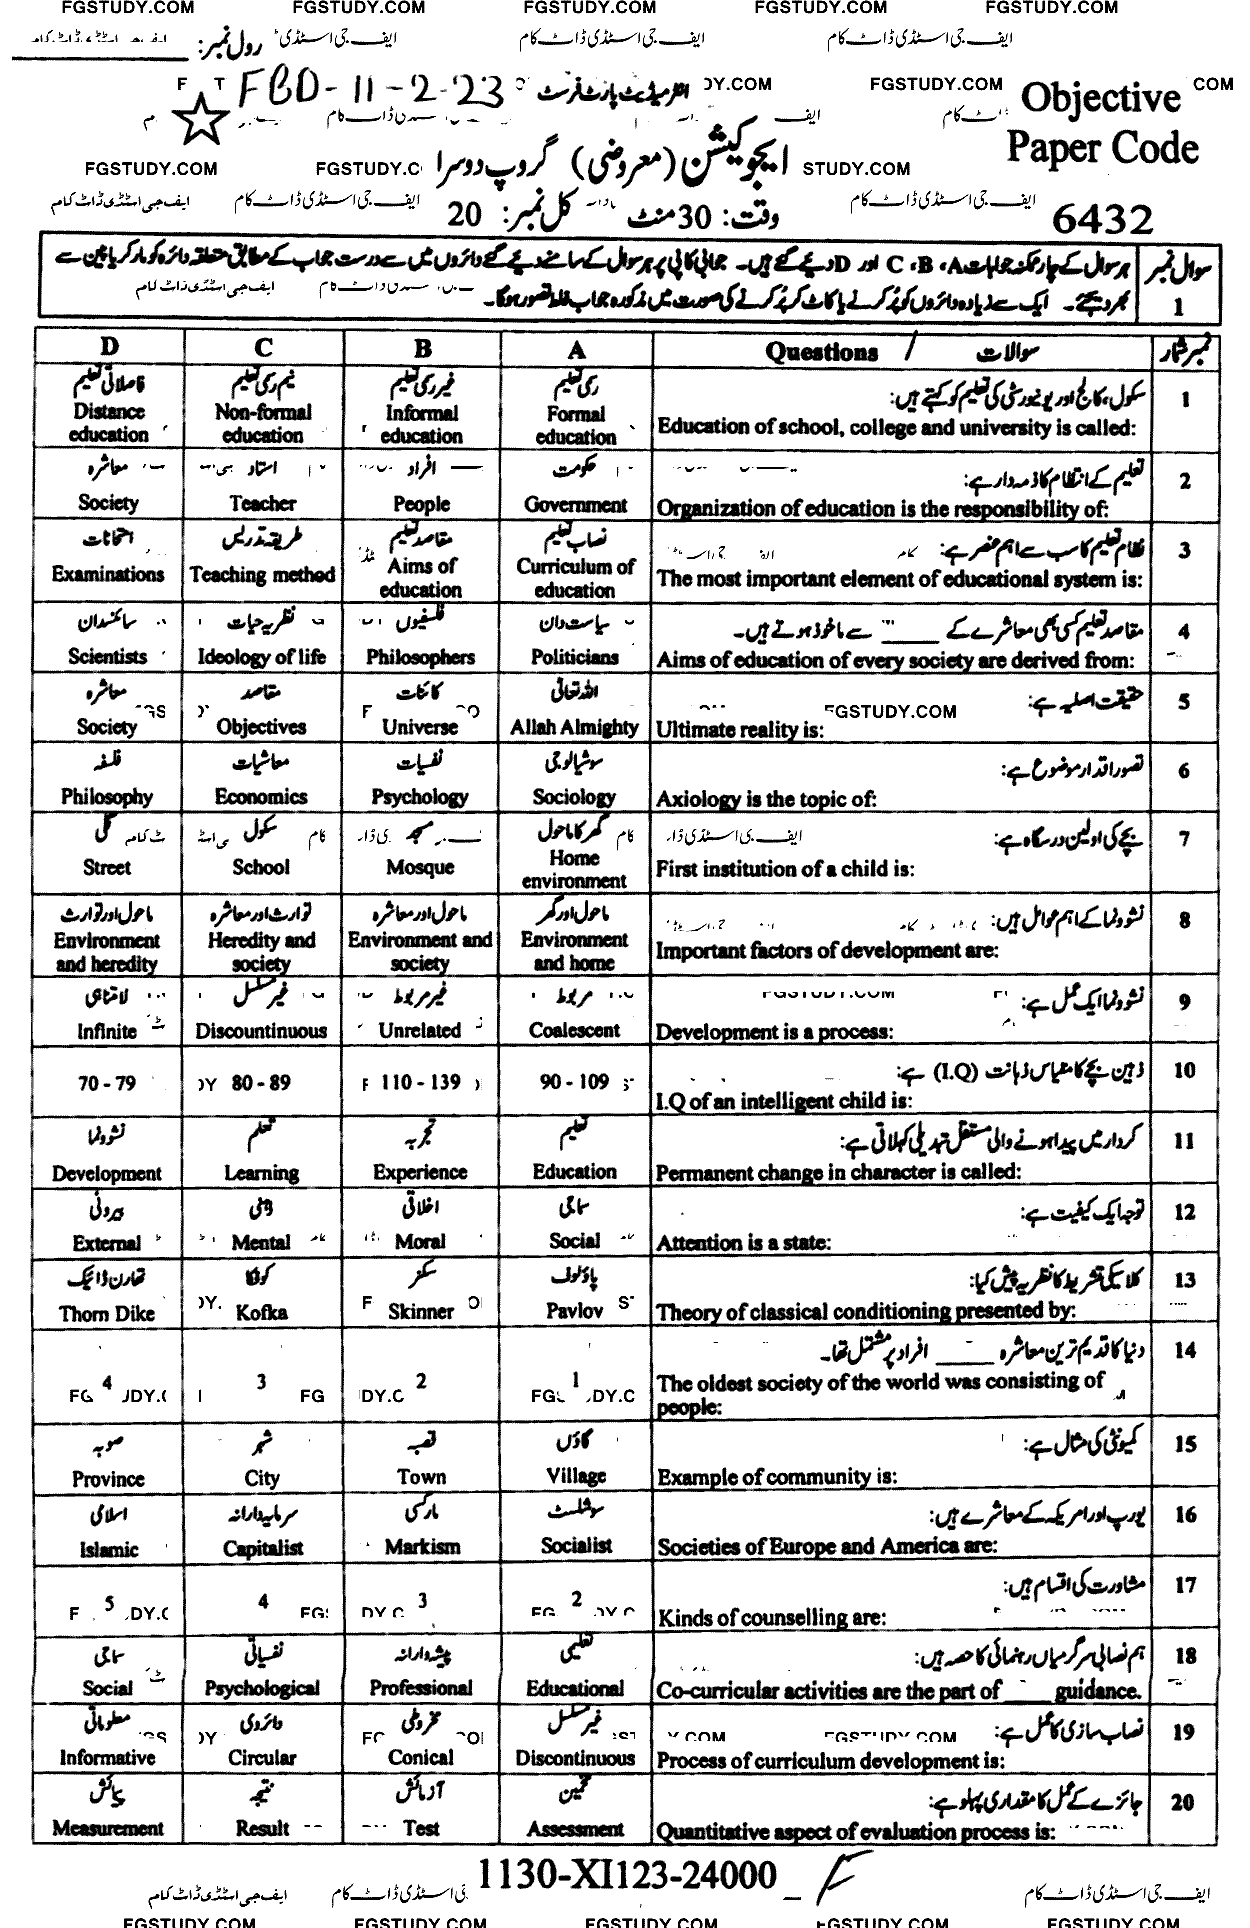 FGSTUDY.COM FGSTUDY.COM FGSTUDY.COM FGSTUDY.COM FGSTUDY.COM
رول نمبر: ایف جی اسٹڈی ایف جی اسٹڈی ڈاٹ کام ایف جی اسٹڈی ڈاٹ کام
FBD-11-2-23 انٹرمیڈیٹ پارٹ فرسٹ DY.COM FGSTUDY.COM COM
Objective
Paper Code
FGSTUDY.COM FGSTUDY.C ایجوکیشن (معروضی) گروپ دوسرا STUDY.COM
ایف جی اسٹڈی ڈاٹ کام ایف جی اسٹڈی ڈاٹ کام وقت: 30 منٹ کل نمبر: 20 ایف جی اسٹڈی ڈاٹ کام 6432
سوال نمبر 1 ہر سوال کے چار ممکنہ جوابات A، B، C اور D دیئے گئے ہیں۔ جوابی کاپی پر ہر سوال کے سامنے دیئے گئے دائروں میں سے درست جواب کے مطابق متعلقہ دائرہ کو مارکر یا پین سے
بھر دیجئے۔ ایک سے زیادہ دائروں کو پُر کرنے یا کاٹ کر پُر کرنے کی صورت میں مذکورہ جواب غلط تصور ہوگا۔
D C B A Questions / سوالات نمبر شمار
فاصلاتی تعلیم نیم رسمی تعلیم غیر رسمی تعلیم رسمی تعلیم سکول، کالج اور یونیورسٹی کی تعلیم کو کہتے ہیں: 1
Distance education Non-formal education Informal education Formal education Education of school, college and university is called:
معاشرہ استاد افراد حکومت تعلیم کے انتظام کا ذمہ دار ہے: 2
Society Teacher People Government Organization of education is the responsibility of:
امتحانات طریقہ تدریس مقاصد تعلیم نصاب تعلیم نظام تعلیم کا سب سے اہم عنصر ہے: 3
Examinations Teaching method Aims of education Curriculum of education The most important element of educational system is:
سائنسدان نظریہ حیات فلسفیوں سیاست دان مقاصد تعلیم کسی بھی معاشرے کے ____ سے ماخوذ ہوتے ہیں۔ 4
Scientists Ideology of life Philosophers Politicians Aims of education of every society are derived from:
معاشرہ مقاصد کائنات اللہ تعالیٰ حقیقت اصلیہ ہے: 5
Society Objectives Universe Allah Almighty Ultimate reality is: FGSTUDY.COM
فلسفہ معاشیات نفسیات سوشیالوجی تصور اقدار موضوع ہے: 6
Philosophy Economics Psychology Sociology Axiology is the topic of:
گلی سکول مسجد گھر کا ماحول بچے کی اولین درسگاہ ہے: 7
Street School Mosque Home environment First institution of a child is:
ماحول اور توارث توارث اور معاشرہ ماحول اور معاشرہ ماحول اور گھر نشوونما کے اہم عوامل ہیں: 8
Environment and heredity Heredity and society Environment and society Environment and home Important factors of development are:
لامتناہی غیر مسلسل غیر مربوط مربوط نشوونما ایک عمل ہے: 9
Infinite Discountinuous Unrelated Coalescent Development is a process:
70 - 79 80 - 89 110 - 139 90 - 109 ذہین بچے کا مقیاس ذہانت (I.Q) ہے: 10
I.Q of an intelligent child is:
نشوونما تعلم تجربہ تعلیم کردار میں پیدا ہونے والی مستقل تبدیلی کہلاتی ہے: 11
Development Learning Experience Education Permanent change in character is called:
بیرونی ذہنی اخلاقی سماجی توجہ ایک کیفیت ہے: 12
External Mental Moral Social Attention is a state:
تھارن ڈائیک کوفکا سکنر پاؤلوف کلاسیکی تشریط کا نظریہ پیش کیا: 13
Thorn Dike Kofka Skinner Pavlov Theory of classical conditioning presented by:
دنیا کا قدیم ترین معاشرہ ____ افراد پر مشتمل تھا۔ 14
4 3 2 1 The oldest society of the world was consisting of
people:
صوبہ شہر قصبہ گاؤں کمیونٹی کی مثال ہے: 15
Province City Town Village Example of community is:
اسلامی سرمایہ دارانہ مارکسی سوشلسٹ یورپ اور امریکہ کے معاشرے ہیں: 16
Islamic Capitalist Markism Socialist Societies of Europe and America are:
5 4 3 2 مشاورت کی اقسام ہیں: 17
Kinds of counselling are:
سماجی نفسیاتی پیشہ دارانہ تعلیمی ہم نصابی سرگرمیاں رہنمائی کا حصہ ہیں: 18
Social Psychological Professional Educational Co-curricular activities are the part of ____ guidance.
معلوماتی دائروی مخروطی غیر مسلسل نصاب سازی کا عمل ہے: 19
Informative Circular Conical Discontinuous Process of curriculum development is:
پیمائش نتیجہ آزمائش تخمین جائزے کے عمل کا مقداری پہلو ہے: 20
Measurement Result Test Assessment Quantitative aspect of evaluation process is:
1130-XI123-24000
ایف جی اسٹڈی ڈاٹ کام اسٹڈی ڈاٹ کام ایف جی اسٹڈی ڈاٹ کام
FGSTUDY.COM FGSTUDY.COM FGSTUDY.COM FGSTUDY.COM FGSTUDY.COM